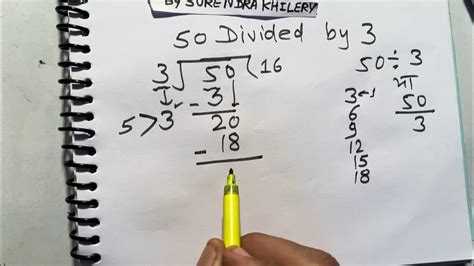 BY SURENDRA KHILERY
50 Divided by 3
3 50 16
- 3
5 > 3
20
- 18
50 ÷ 3
या
50
3
3
6
9
12
15
18